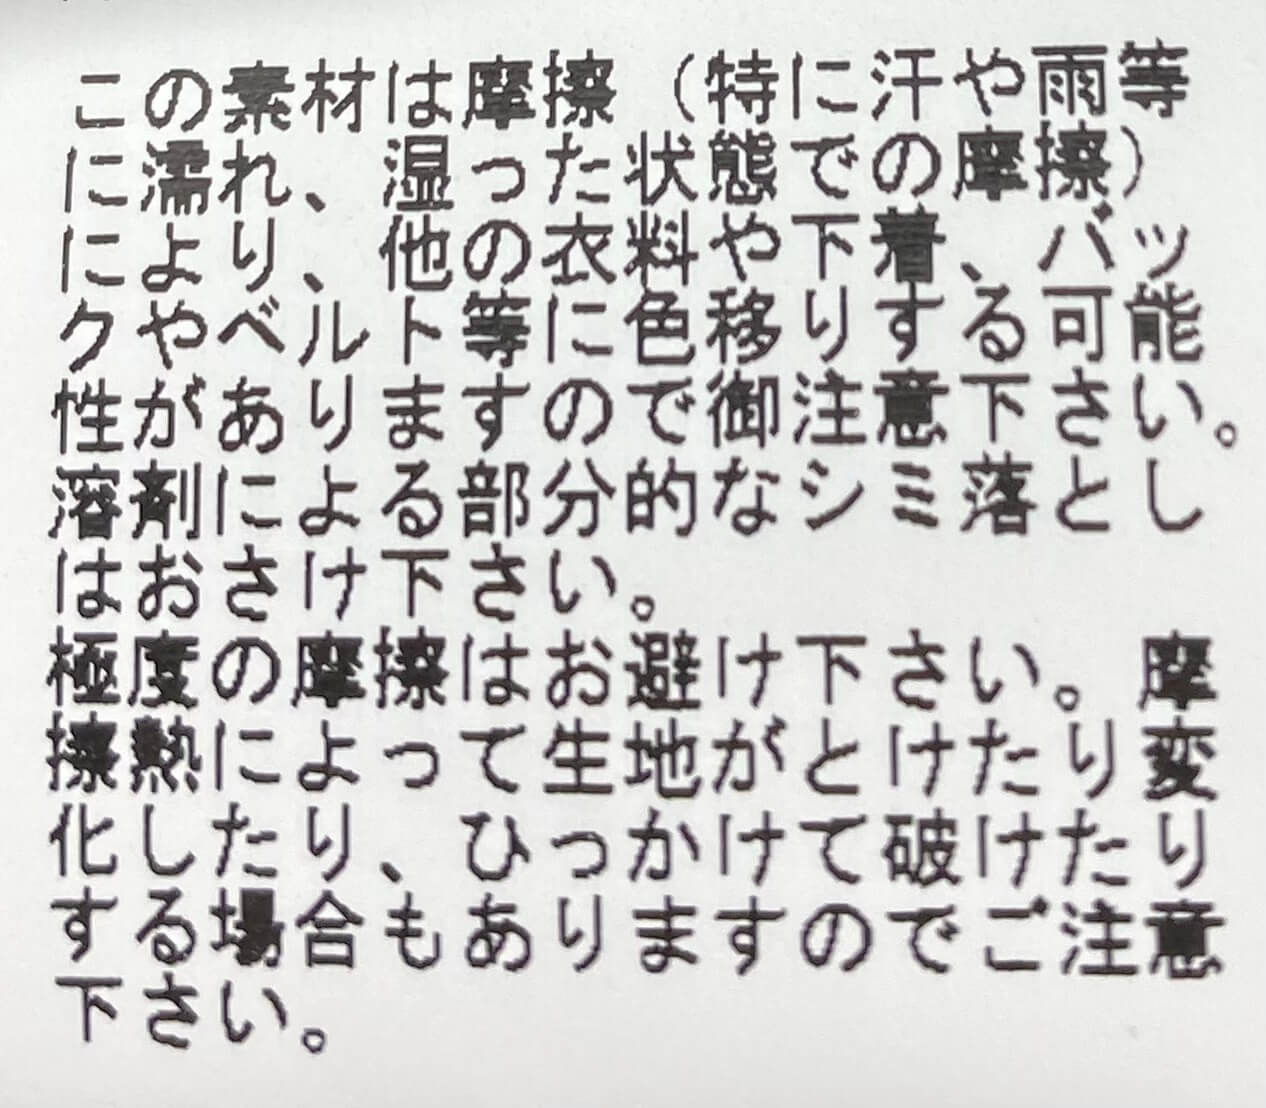 この素材は摩擦（特に汗や雨等
に濡れ、湿った状態での摩擦）
により、他の衣料や下着、バッ
クやベルト等に色移りする可能
性がありますので御注意下さい。
溶剤による部分的なシミ落とし
はおさけ下さい。
極度の摩擦はお避け下さい。摩
擦熱によって生地がとけたり変
化したり、ひっかけて破けたり
する場合もありますのでご注意
下さい。